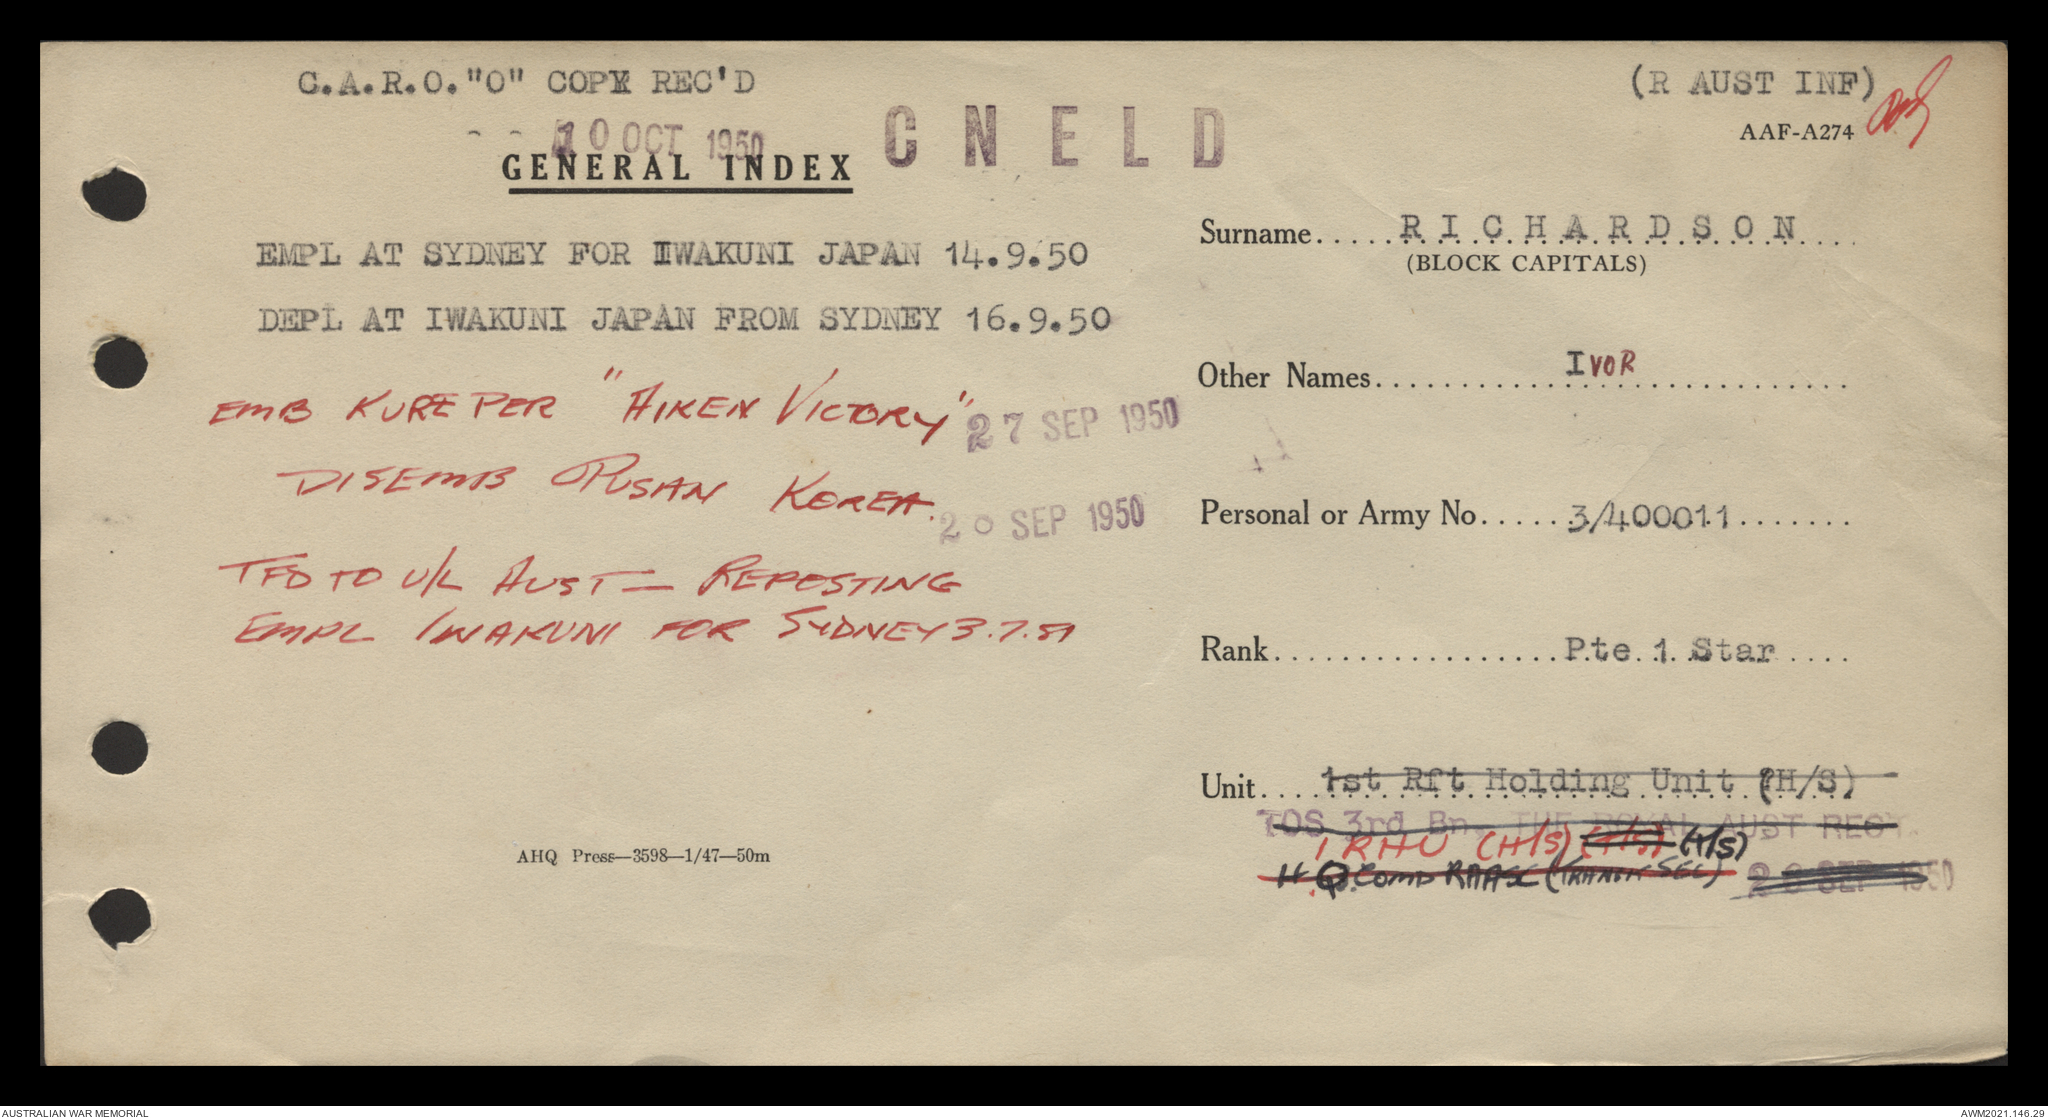 C.A.R.O."O" COPY REC'D
(R AUST INF)
10 OCT 1950
C N E L D
AAF-A274
GENERAL INDEX
EMPL AT SYDNEY FOR IWAKUNI JAPAN 14.9.50
DEPL AT IWAKUNI JAPAN FROM SYDNEY 16.9.50
EMB KURE PER "AIKEN VICTORY" 27 SEP 1950
DISEMB PUSAN KOREA. 20 SEP 1950
TFD TO U/L AUST — REPOSTING
EMPL IWAKUNI FOR SYDNEY 3.7.51
AHQ Press—3598—1/47—50m
Surname..... RICHARDSON
(BLOCK CAPITALS)
Other Names..... IVOR
Personal or Army No..... 3/400011
Rank..... Pte 1 Star
Unit..... 1st Rft Holding Unit (H/S)
TOS 3rd Bn. THE ROYAL AUST REGT.
1 RHU (H/S) (T/S)
H.Q. Comd RAASC 28 SEP 1950
AUSTRALIAN WAR MEMORIAL
AWM2021.146.29